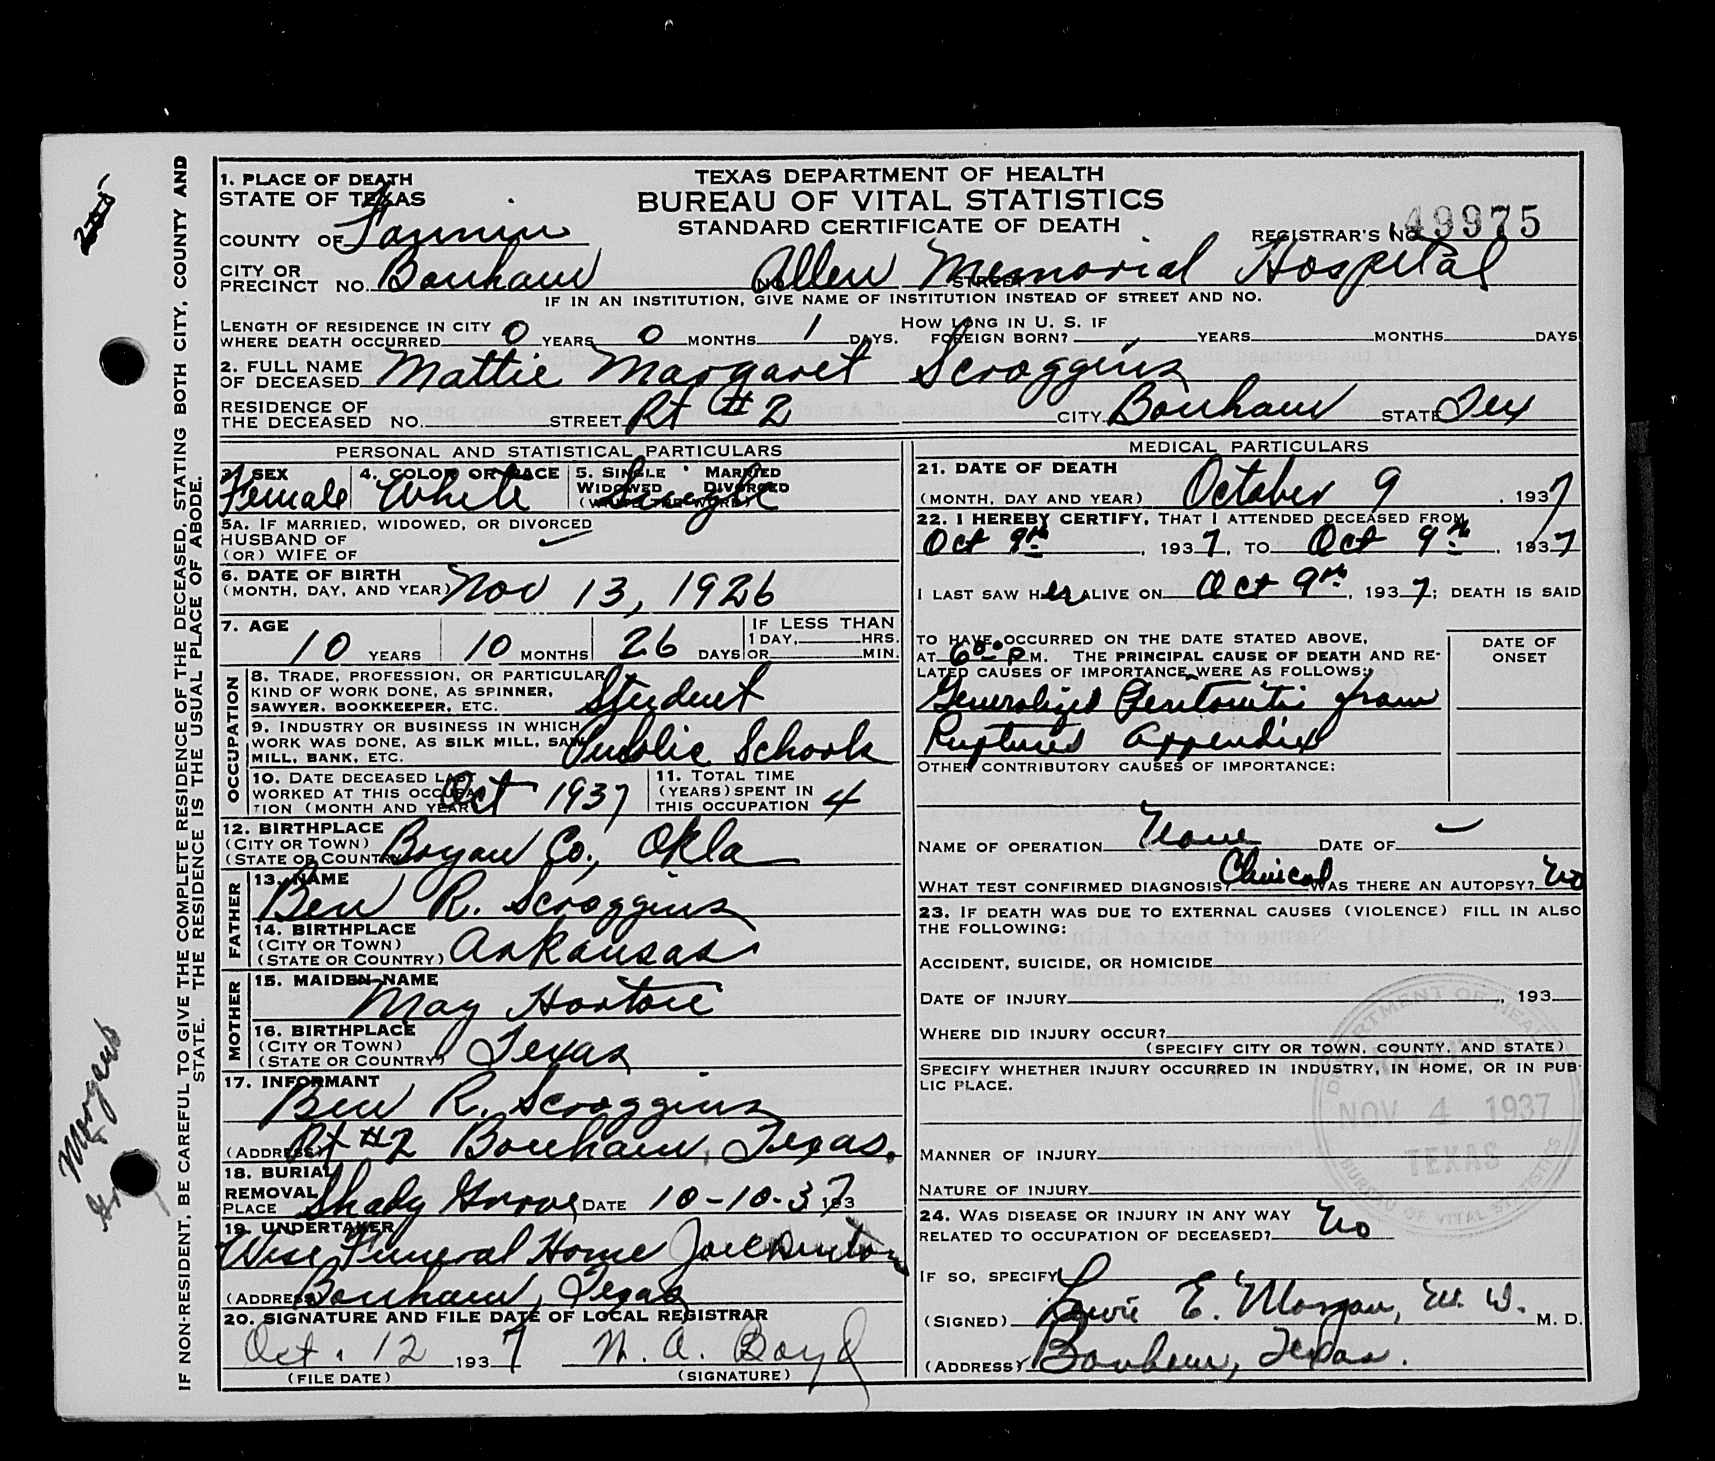 1. PLACE OF DEATH
STATE OF TEXAS
COUNTY OF Fannin
TEXAS DEPARTMENT OF HEALTH
BUREAU OF VITAL STATISTICS
STANDARD CERTIFICATE OF DEATH
REGISTRAR'S NO. 49975
CITY OR
PRECINCT NO. Bonham Allen Memorial Hospital
IF IN AN INSTITUTION, GIVE NAME OF INSTITUTION INSTEAD OF STREET AND NO.
LENGTH OF RESIDENCE IN CITY
WHERE DEATH OCCURRED 0 YEARS 0 MONTHS 1 DAYS. HOW LONG IN U. S. IF FOREIGN BORN? YEARS MONTHS DAYS
2. FULL NAME
OF DECEASED Mattie Margaret Scroggins
RESIDENCE OF
THE DECEASED NO. STREET Rt #2 CITY Bonham STATE Tex
PERSONAL AND STATISTICAL PARTICULARS
3. SEX 4. COLOR OR RACE 5. SINGLE MARRIED
WIDOWED DIVORCED
Female White Single
5A. IF MARRIED, WIDOWED, OR DIVORCED
HUSBAND OF
(OR) WIFE OF
6. DATE OF BIRTH
(MONTH, DAY, AND YEAR) Nov 13, 1926
7. AGE 10 YEARS 10 MONTHS 26 DAYS IF LESS THAN
1 DAY, HRS.
OR MIN.
OCCUPATION
8. TRADE, PROFESSION, OR PARTICULAR
KIND OF WORK DONE, AS SPINNER,
SAWYER, BOOKKEEPER, ETC. Student
9. INDUSTRY OR BUSINESS IN WHICH
WORK WAS DONE, AS SILK MILL, SAW
MILL, BANK, ETC. Public Schools
10. DATE DECEASED LAST
WORKED AT THIS OCCUPA-
TION (MONTH AND YEAR) Oct 1937
11. TOTAL TIME
(YEARS) SPENT IN
THIS OCCUPATION 4
12. BIRTHPLACE
(CITY OR TOWN)
(STATE OR COUNTRY) Bryan Co., Okla
FATHER
13. NAME
Ben R. Scroggins
14. BIRTHPLACE
(CITY OR TOWN)
(STATE OR COUNTRY) Arkansas
MOTHER
15. MAIDEN NAME
May Horton
16. BIRTHPLACE
(CITY OR TOWN)
(STATE OR COUNTRY) Texas
17. INFORMANT
Ben R. Scroggins
(ADDRESS) Rt #2 Bonham, Texas.
18. BURIAL
REMOVAL
PLACE Shady Grove DATE 10-10-37 193
19. UNDERTAKER
Wise Funeral Home
(ADDRESS) Bonham, Texas
20. SIGNATURE AND FILE DATE OF LOCAL REGISTRAR
Oct. 12 1937 N. A. Boyd
(FILE DATE) (SIGNATURE)
MEDICAL PARTICULARS
21. DATE OF DEATH
(MONTH, DAY AND YEAR) October 9, 1937
22. I HEREBY CERTIFY, THAT I ATTENDED DECEASED FROM
Oct 9th, 1937, TO Oct 9th, 1937
I LAST SAW HER ALIVE ON Oct 9th, 1937; DEATH IS SAID
TO HAVE OCCURRED ON THE DATE STATED ABOVE,
AT 6:00 P M. THE PRINCIPAL CAUSE OF DEATH AND RE-
LATED CAUSES OF IMPORTANCE WERE AS FOLLOWS:
DATE OF
ONSET
Generalized Peritonitis from
Ruptured Appendix
OTHER CONTRIBUTORY CAUSES OF IMPORTANCE:
NAME OF OPERATION None DATE OF
WHAT TEST CONFIRMED DIAGNOSIS? Clinical WAS THERE AN AUTOPSY? No
23. IF DEATH WAS DUE TO EXTERNAL CAUSES (VIOLENCE) FILL IN ALSO
THE FOLLOWING:
ACCIDENT, SUICIDE, OR HOMICIDE
DATE OF INJURY , 193
WHERE DID INJURY OCCUR?
(SPECIFY CITY OR TOWN, COUNTY, AND STATE)
SPECIFY WHETHER INJURY OCCURRED IN INDUSTRY, IN HOME, OR IN PUB-
LIC PLACE.
MANNER OF INJURY
NATURE OF INJURY
DEPARTMENT OF HEALTH
RECEIVED
NOV 4 1937
TEXAS
BUREAU OF VITAL STATISTICS
24. WAS DISEASE OR INJURY IN ANY WAY
RELATED TO OCCUPATION OF DECEASED? No
IF SO, SPECIFY
(SIGNED) E. Morgan, M. D. M. D.
(ADDRESS) Bonham, Texas.
IF NON-RESIDENT, BE CAREFUL TO GIVE THE COMPLETE RESIDENCE OF THE DECEASED, STATING BOTH CITY, COUNTY AND
STATE. THE RESIDENCE IS THE USUAL PLACE OF ABODE.